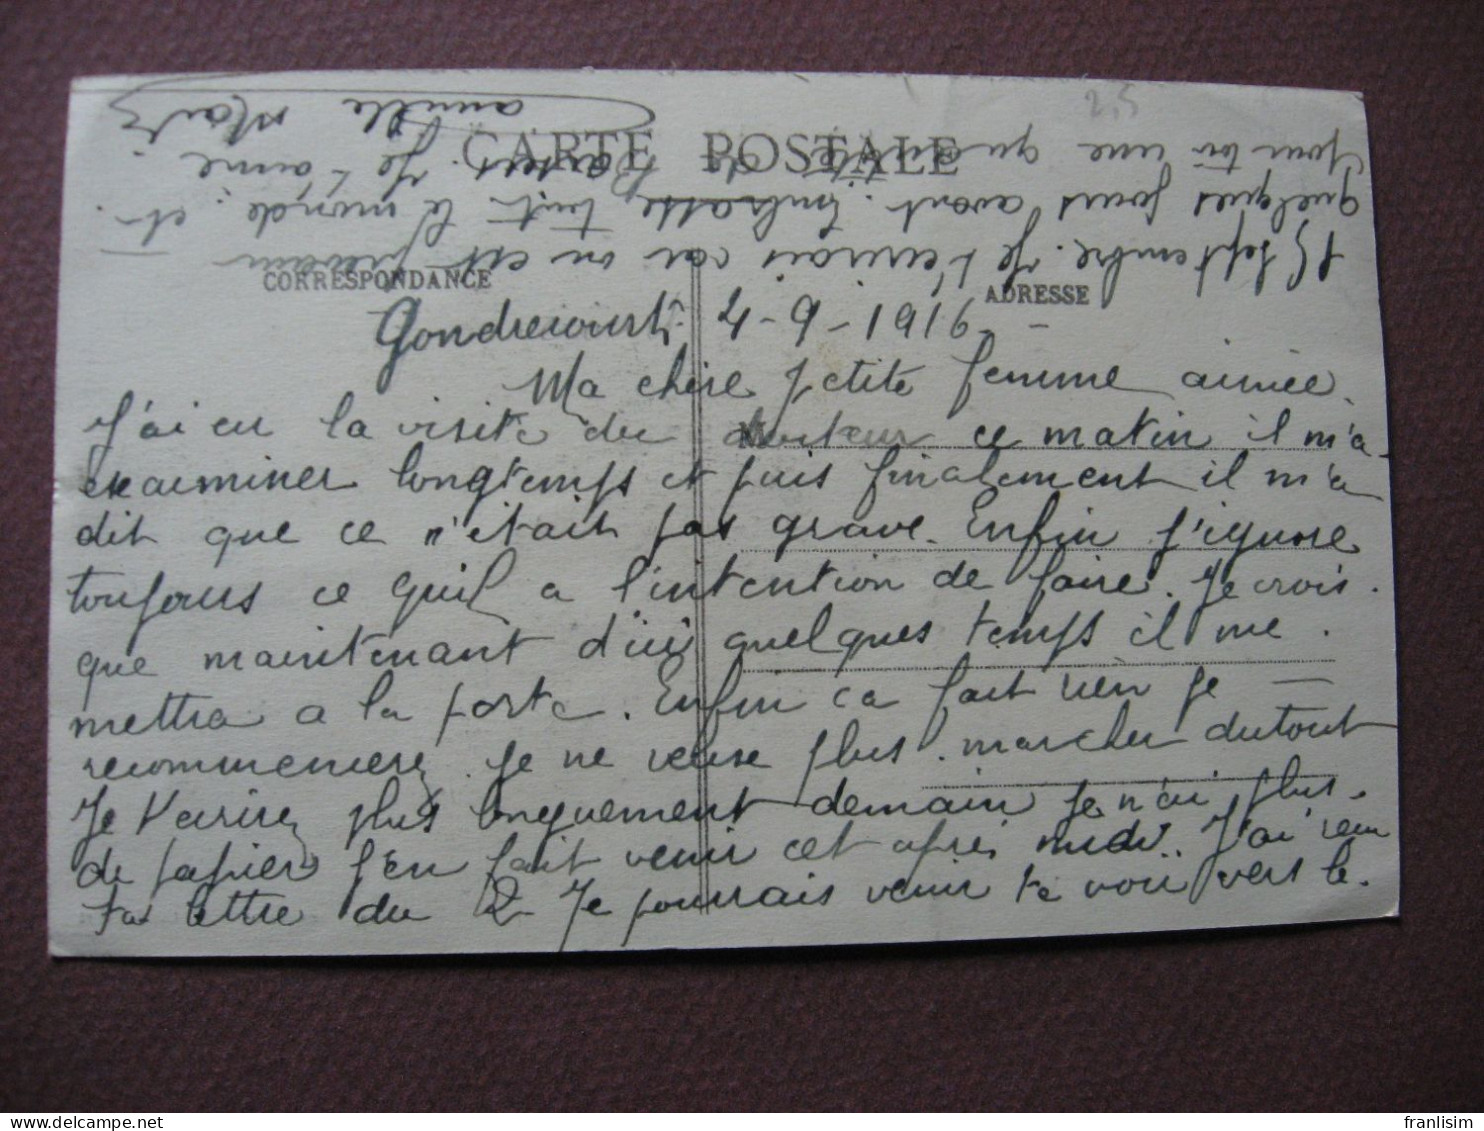 2,5
CARTE POSTALE
CORRESPONDANCE
ADRESSE
Gondrecourt. 4-9-1916
Ma chère petite femme aimée.
J'ai eu la visite du docteur ce matin il m'a
examiner longtemps et puis finalement il m'a
dit que ce n'était pas grave. Enfin j'ignore
toujours ce quil a l'intention de faire. Je crois
que maintenant d'ici quelques temps il me
mettra a la porte. Enfin ca fait rien je
recommencerez. Je ne veuse plus marcher dutout
Je t'ecrirez plus longuement demain je n'ai plus
de papier j'en fait venir cet après midi. J'ai recu
ta lettre du 2 Je pourrais venir te voir vers le
15 Septembre. Je t'ecrirais car on est prevenu
quelques jours avant. Embrasse tout le monde. et
pour toi une quantité de Baisers. Je t'aime
Camille
franlisim